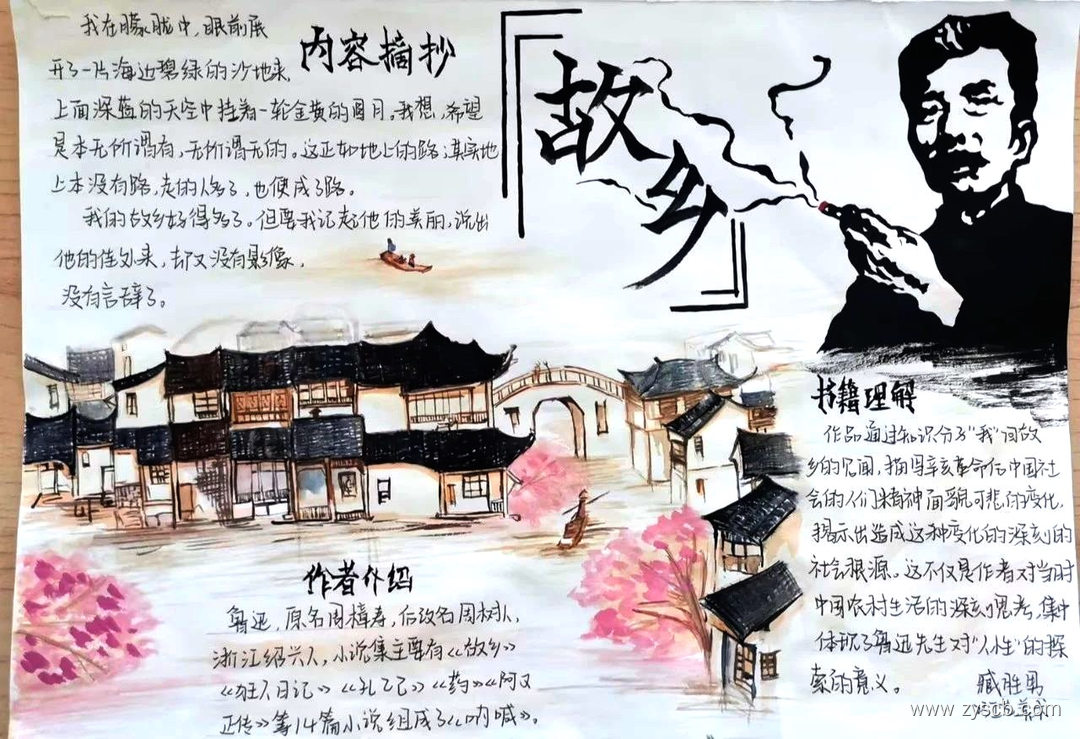 内容摘抄
我在朦胧中，眼前展
开了一片海边碧绿的沙地来，
上面深蓝的天空中挂着一轮金黄的圆月。我想，希望
是本无所谓有，无所谓无的。这正如地上的路；其实地
上本没有路，走的人多了，也便成了路。
我的故乡好得多了。但要我记起他的美丽，说出
他的佳处来，却又没有影像，
没有言辞了。
『故乡』
书籍理解
作品通过知识分子"我"回故
乡的见闻，描写辛亥革命后中国社
会的人们精神面貌可悲的变化，
揭示出造成这种变化的深刻的
社会根源。这不仅是作者对当时
中国农村生活的深刻思考，集中
体现了鲁迅先生对"人性"的探
索的意义。
臧胜男
作者介绍
鲁迅，原名周樟寿，后改名周树人，
浙江绍兴人，小说集主要有《故乡》
《狂人日记》《孔乙己》《药》《阿Q
正传》等14篇小说组成了《呐喊》。
www.zyscb.com